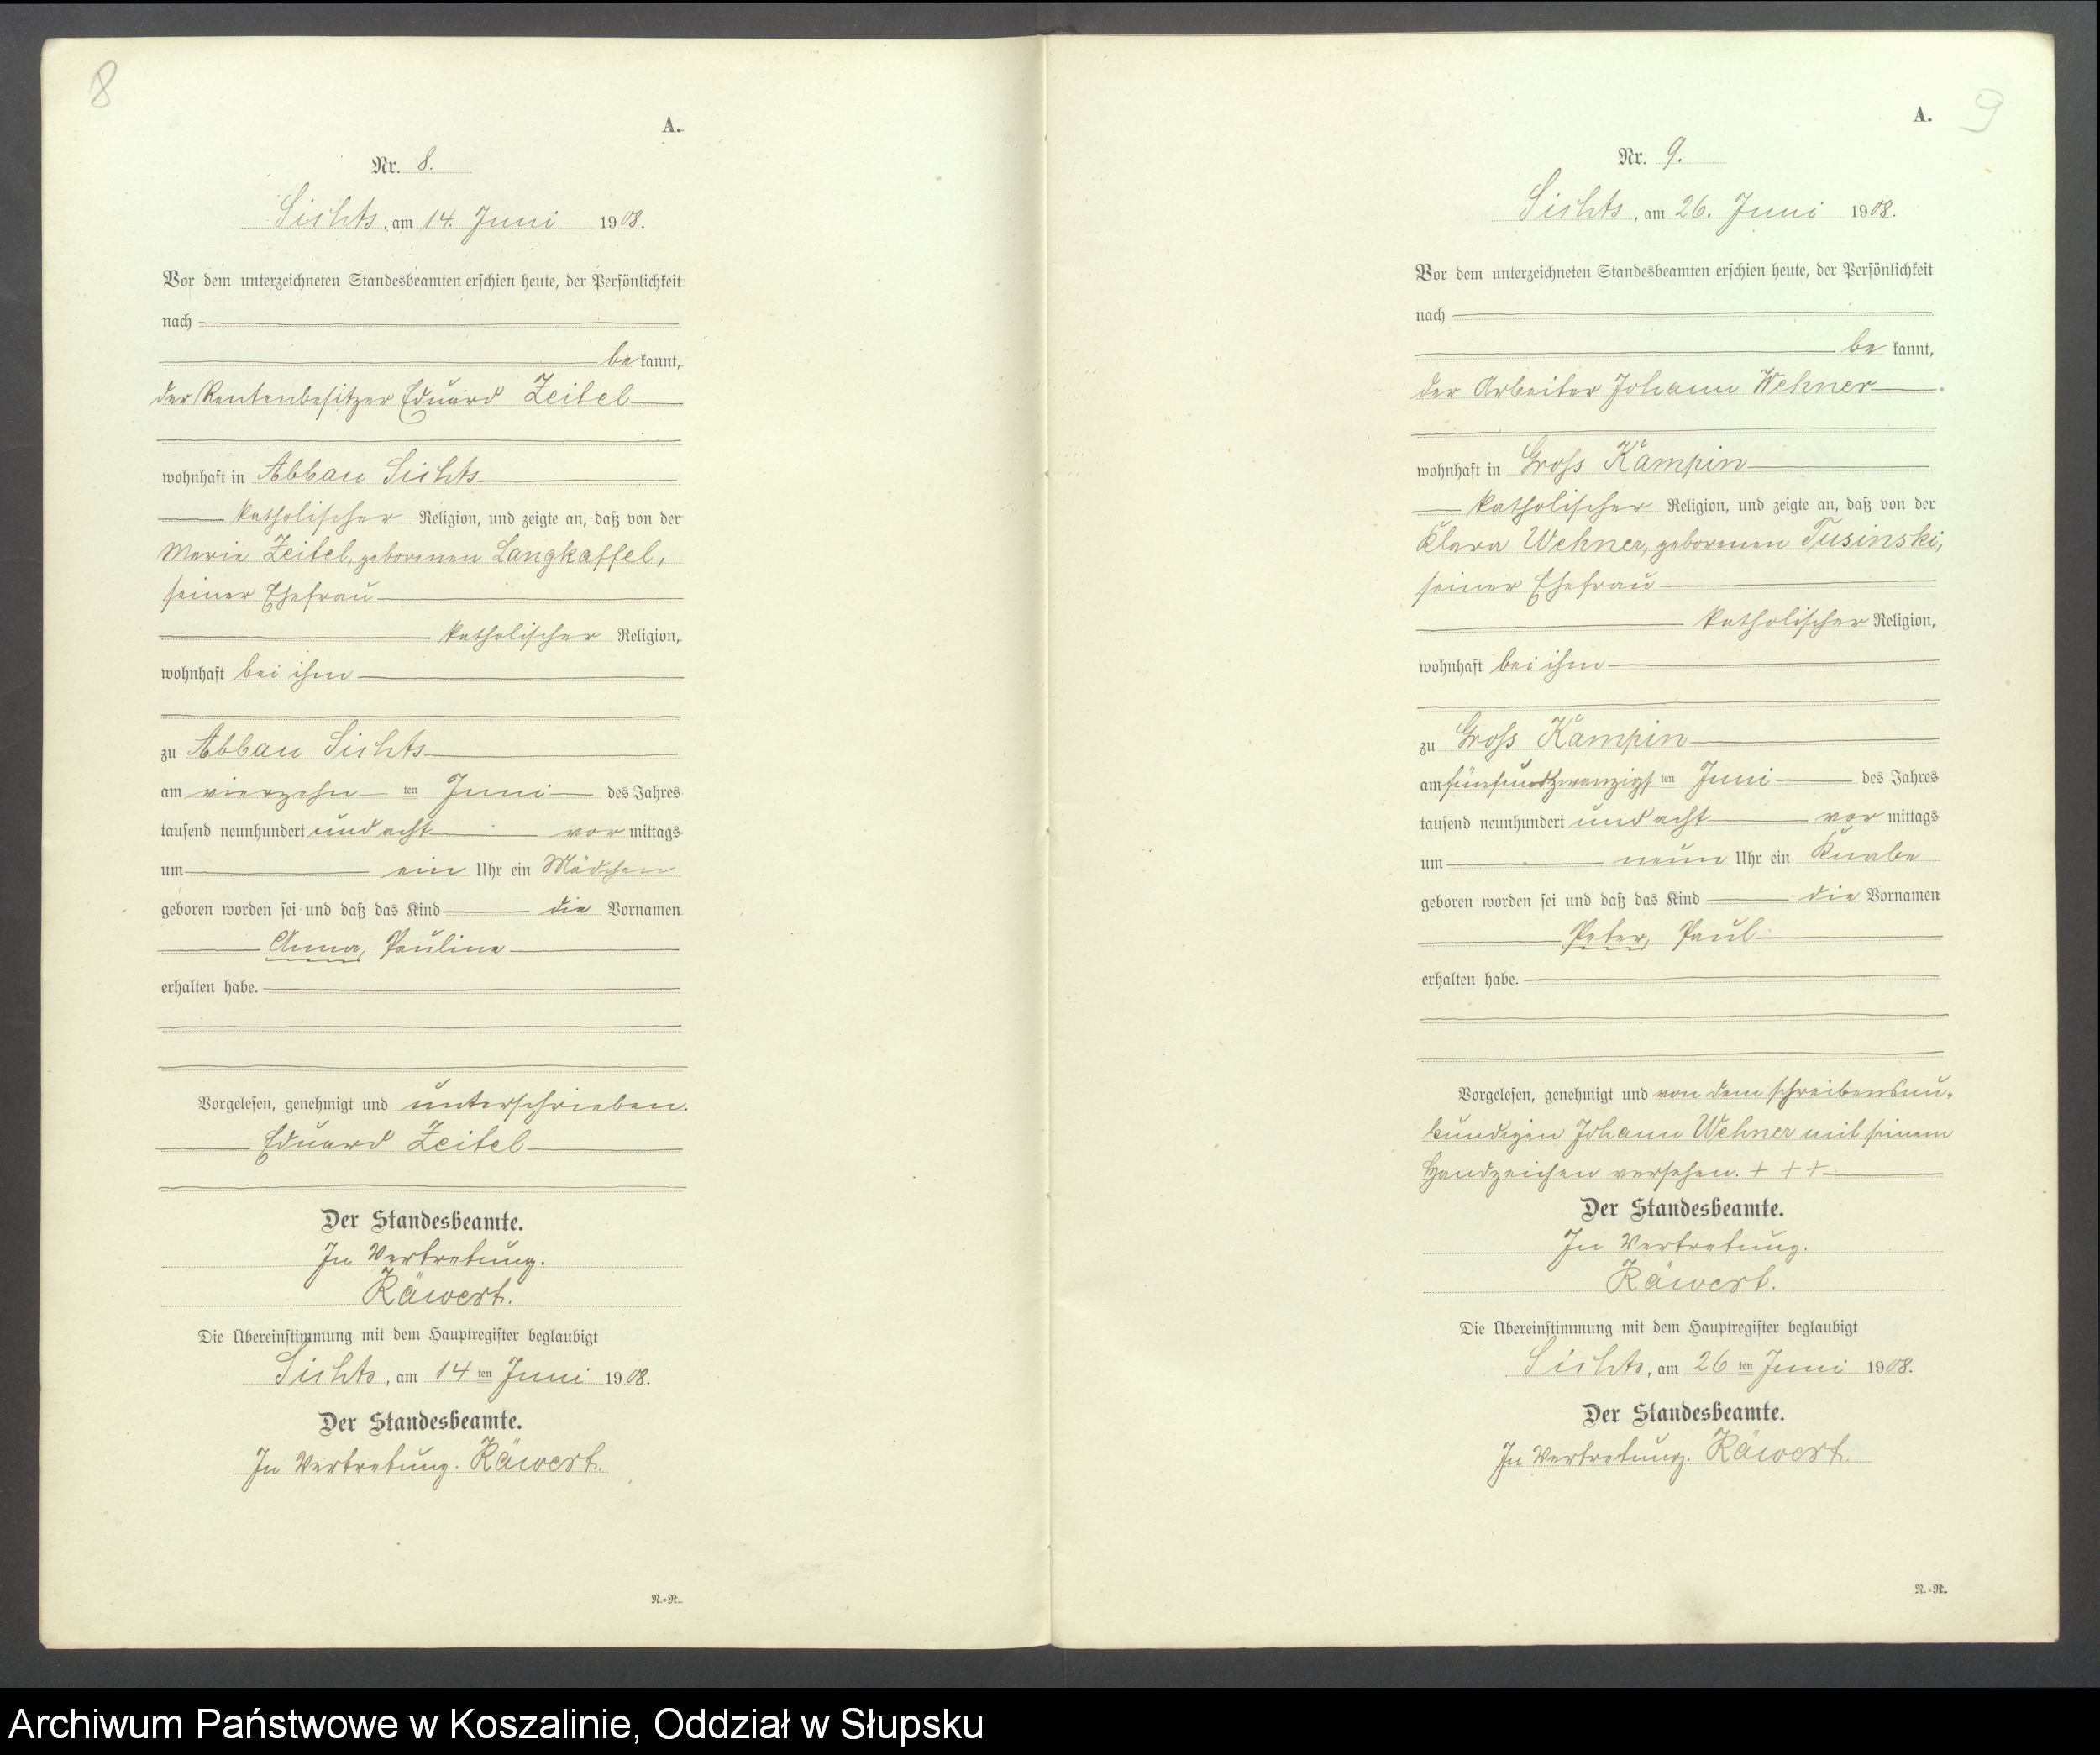 8
A.
Nr. 8.
Sichts, am 14. Juni 1908.
Vor dem unterzeichneten Standesbeamten erschien heute, der Persönlichkeit
nach
be kannt,
der Rentenbesitzer Eduard Zeitel
wohnhaft in Abbau Sichts
katholischer Religion, und zeigte an, daß von der
Marie Zeitel, geborenen Langkaffel,
seiner Ehefrau
katholischer Religion,
wohnhaft bei ihm
zu Abbau Sichts
am vierzehn ten Juni des Jahres
tausend neunhundert und acht vor mittags
um ein Uhr ein Mädchen
geboren worden sei und daß das Kind die Vornamen
Anna, Pauline
erhalten habe.
Vorgelesen, genehmigt und unterschrieben.
Eduard Zeitel
Der Standesbeamte.
In Vertretung.
Räwert.
Die Übereinstimmung mit dem Hauptregister beglaubigt
Sichts, am 14 ten Juni 1908.
Der Standesbeamte.
In Vertretung. Räwert.
N.=R.
9
A.
Nr. 9.
Sichts, am 26. Juni 1908.
Vor dem unterzeichneten Standesbeamten erschien heute, der Persönlichkeit
nach
be kannt,
der Arbeiter Johann Wehner
wohnhaft in Gross Kämpin
katholischer Religion, und zeigte an, daß von der
Klara Wehner, geborenen Tusinski,
seiner Ehefrau
katholischer Religion,
wohnhaft bei ihm
zu Gross Kämpin
am fünfundzwanzigs ten Juni des Jahres
tausend neunhundert und acht vor mittags
um neun Uhr ein Knabe
geboren worden sei und daß das Kind die Vornamen
Peter, Paul
erhalten habe.
Vorgelesen, genehmigt und von dem schreibensun-
kundigen Johann Wehner mit seinem
Handzeichen versehen. + + +
Der Standesbeamte.
In Vertretung.
Räwert.
Die Übereinstimmung mit dem Hauptregister beglaubigt
Sichts, am 26 ten Juni 1908.
Der Standesbeamte.
In Vertretung. Räwert.
N.=R.
Archiwum Państwowe w Koszalinie, Oddział w Słupsku